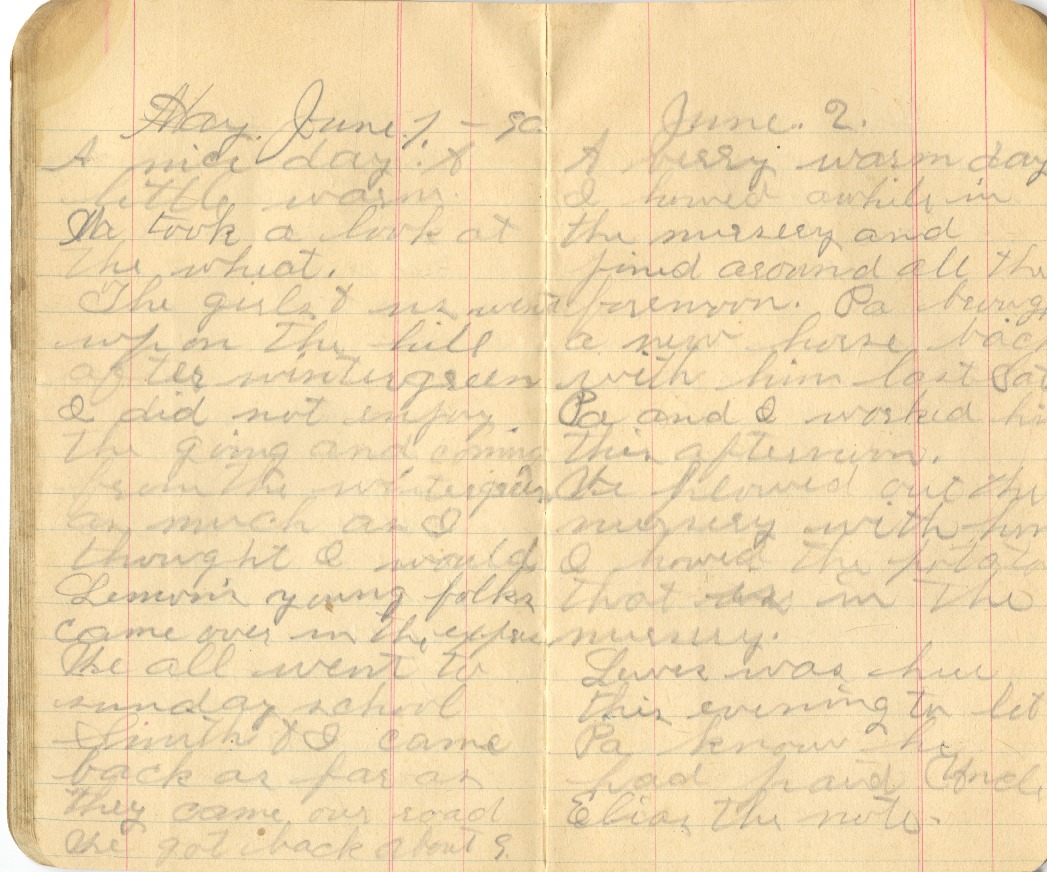 May. June. 1, - 90
A nice day. &
little warm.
Pa took a look at
the wheat.
The girls & us went
up on the hill
after wintergreen
I did not enjoy
the going and coming
from the wintergreen
as much as I
thought I would
Lemon's young folks
came over in the
We all went to
sunday school
Smith & I came
back as far as
they came our road
We got back about 9.
June. 2.
A verry warm day
I howed awhile in
the nursery and
fined around all the
forenoon. Pa
a new horse
with him last Sat
Pa and I worked
this afternoon.
We plowed out the
nursery with him
I howed the
that is in the
nursery.
was here
this evening to let
Pa know he
had paid Uncle
Elias the note.